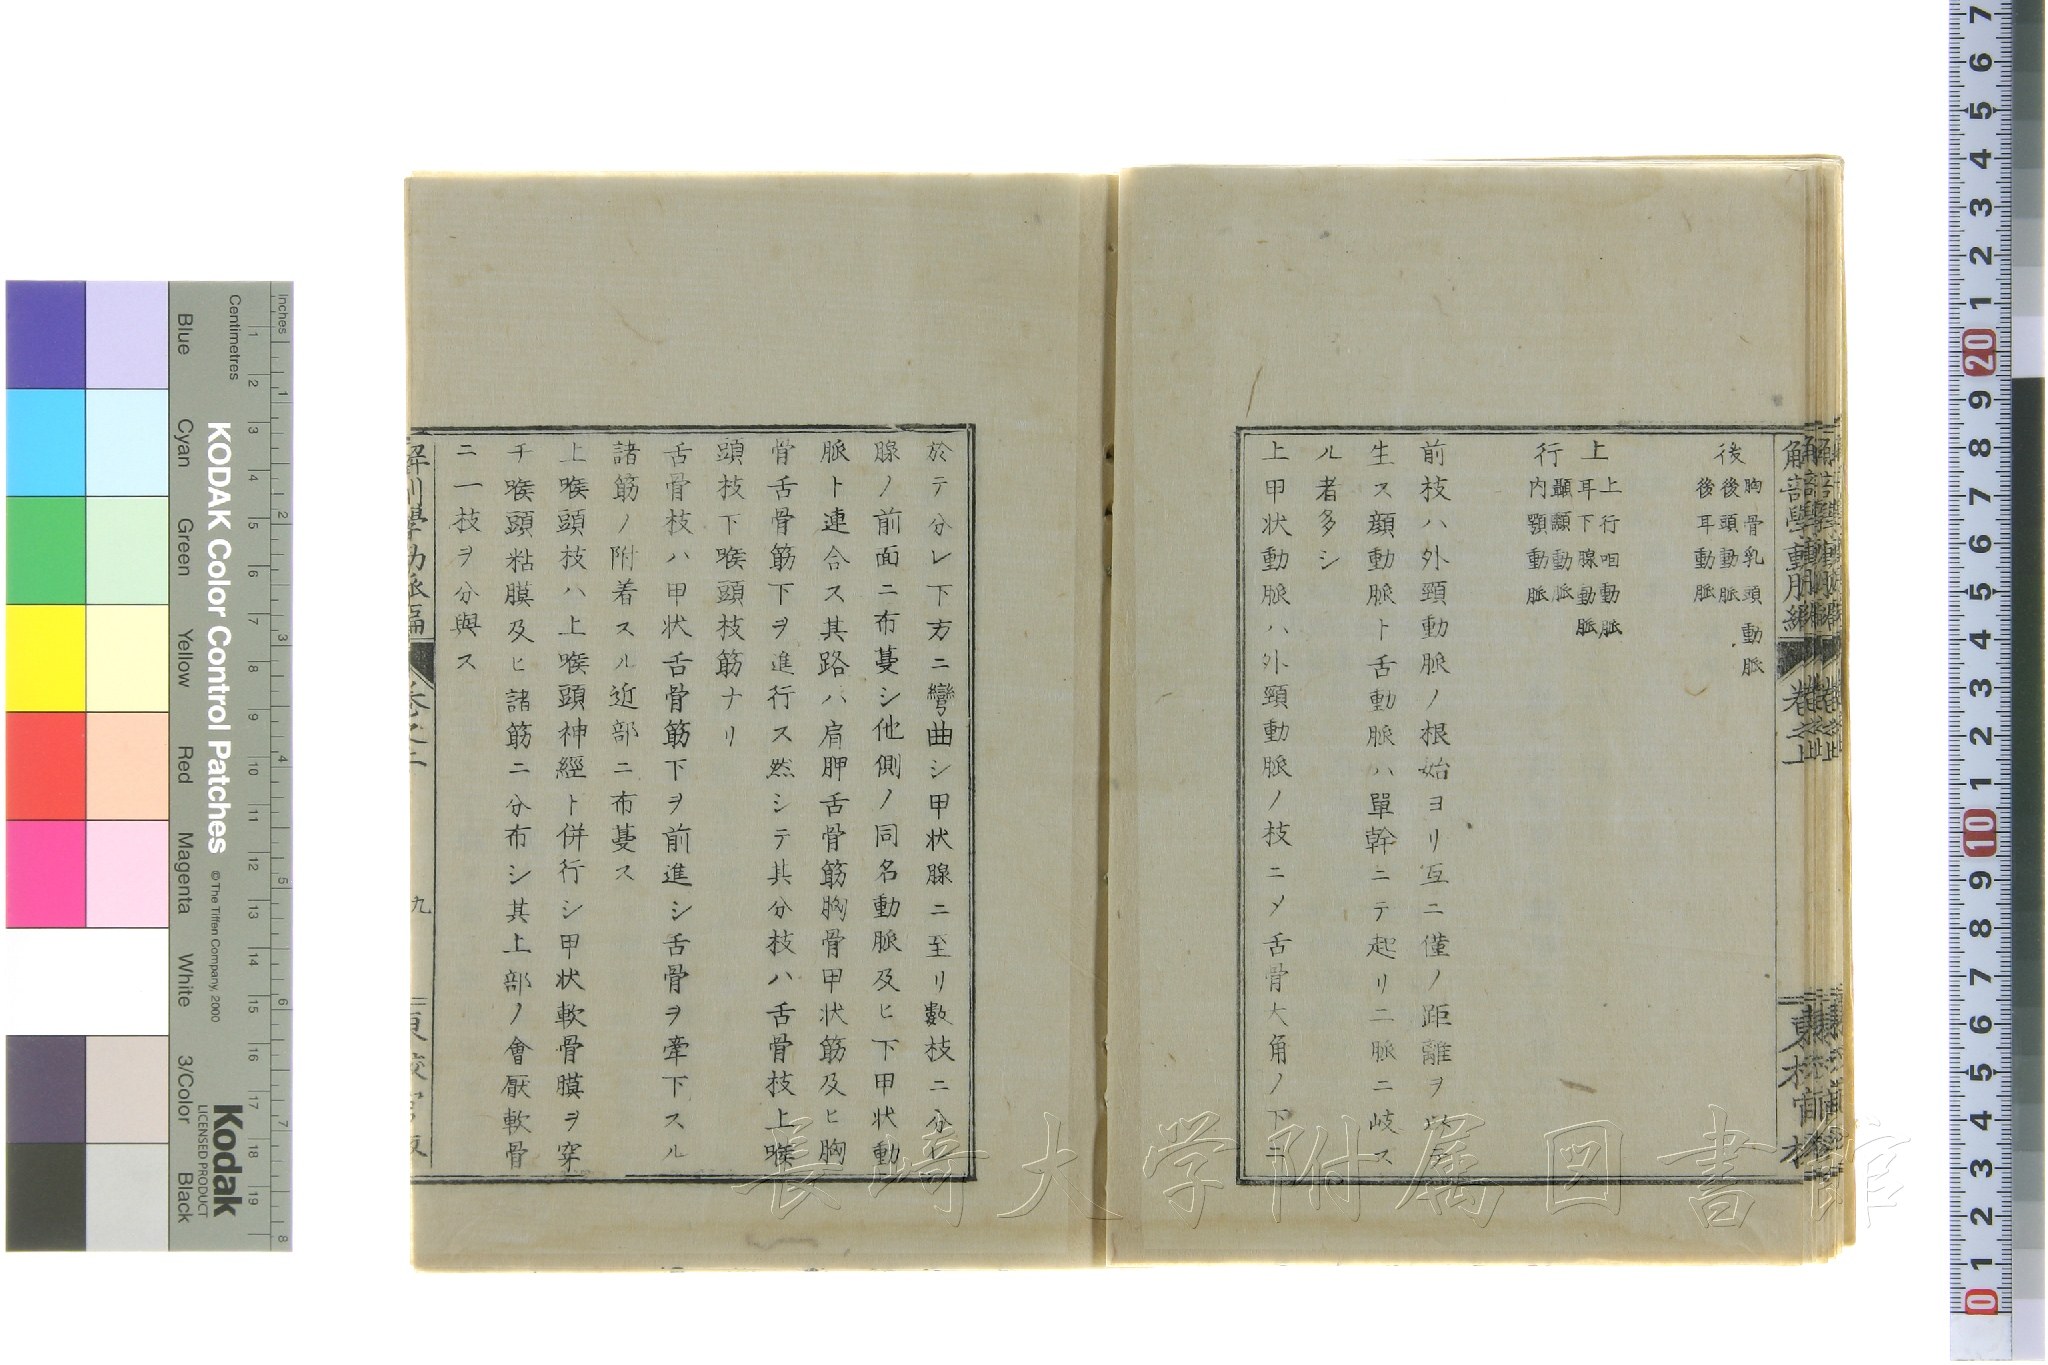 後
胸骨乳頭動脈
後頭動脈
後耳動脈
上行
上行咽動脈
耳下腺動脈
顳顬動脈
内顎動脈
前枝ハ外頸動脈ノ根始ヨリ互ニ僅ノ距離ヲ以テ
生ス顔動脈ト舌動脈ハ單幹ニテ起リ二脈ニ岐ス
ル者多シ
上甲状動脈ハ外頸動脈ノ枝ニメ舌骨大角ノ下ニ
於テ分レ下方ニ彎曲シ甲状腺ニ至リ數枝ニ分レ
腺ノ前面ニ布蔓シ他側ノ同名動脈及ヒ下甲状動
脈ト連合ス其路ハ肩胛舌骨筋胸骨甲状筋及ヒ胸
骨舌骨筋下ヲ進行ス然シテ其分枝ハ舌骨枝上喉
頭枝下喉頭枝筋ナリ
舌骨枝ハ甲状舌骨筋下ヲ前進シ舌骨ヲ牽下スル
諸筋ノ附着スル近部ニ布蔓ス
上喉頭枝ハ上喉頭神經ト併行シ甲状軟骨膜ヲ穿
チ喉頭粘膜及ヒ諸筋ニ分布シ其上部ノ會厭軟骨
ニ一枝ヲ分與ス
九
長崎大学附属図書館
KODAK Color Control Patches
© The Tiffen Company, 2000
Kodak
LICENSED PRODUCT
Inches
Centimetres
Blue
Cyan
Green
Yellow
Red
Magenta
White
3/Color
Black